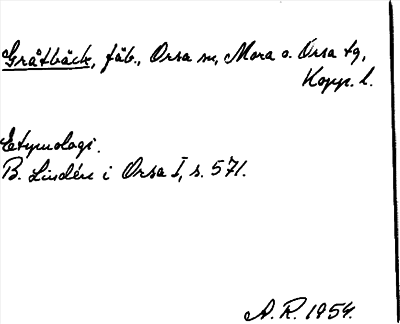 Gråtbäck, fäb., Orsa sn, Mora o. Orsa tg,
Kopp. l.
Etymologi.
B. Lindén i Orsa I, s. 571.
A. R. 1954.